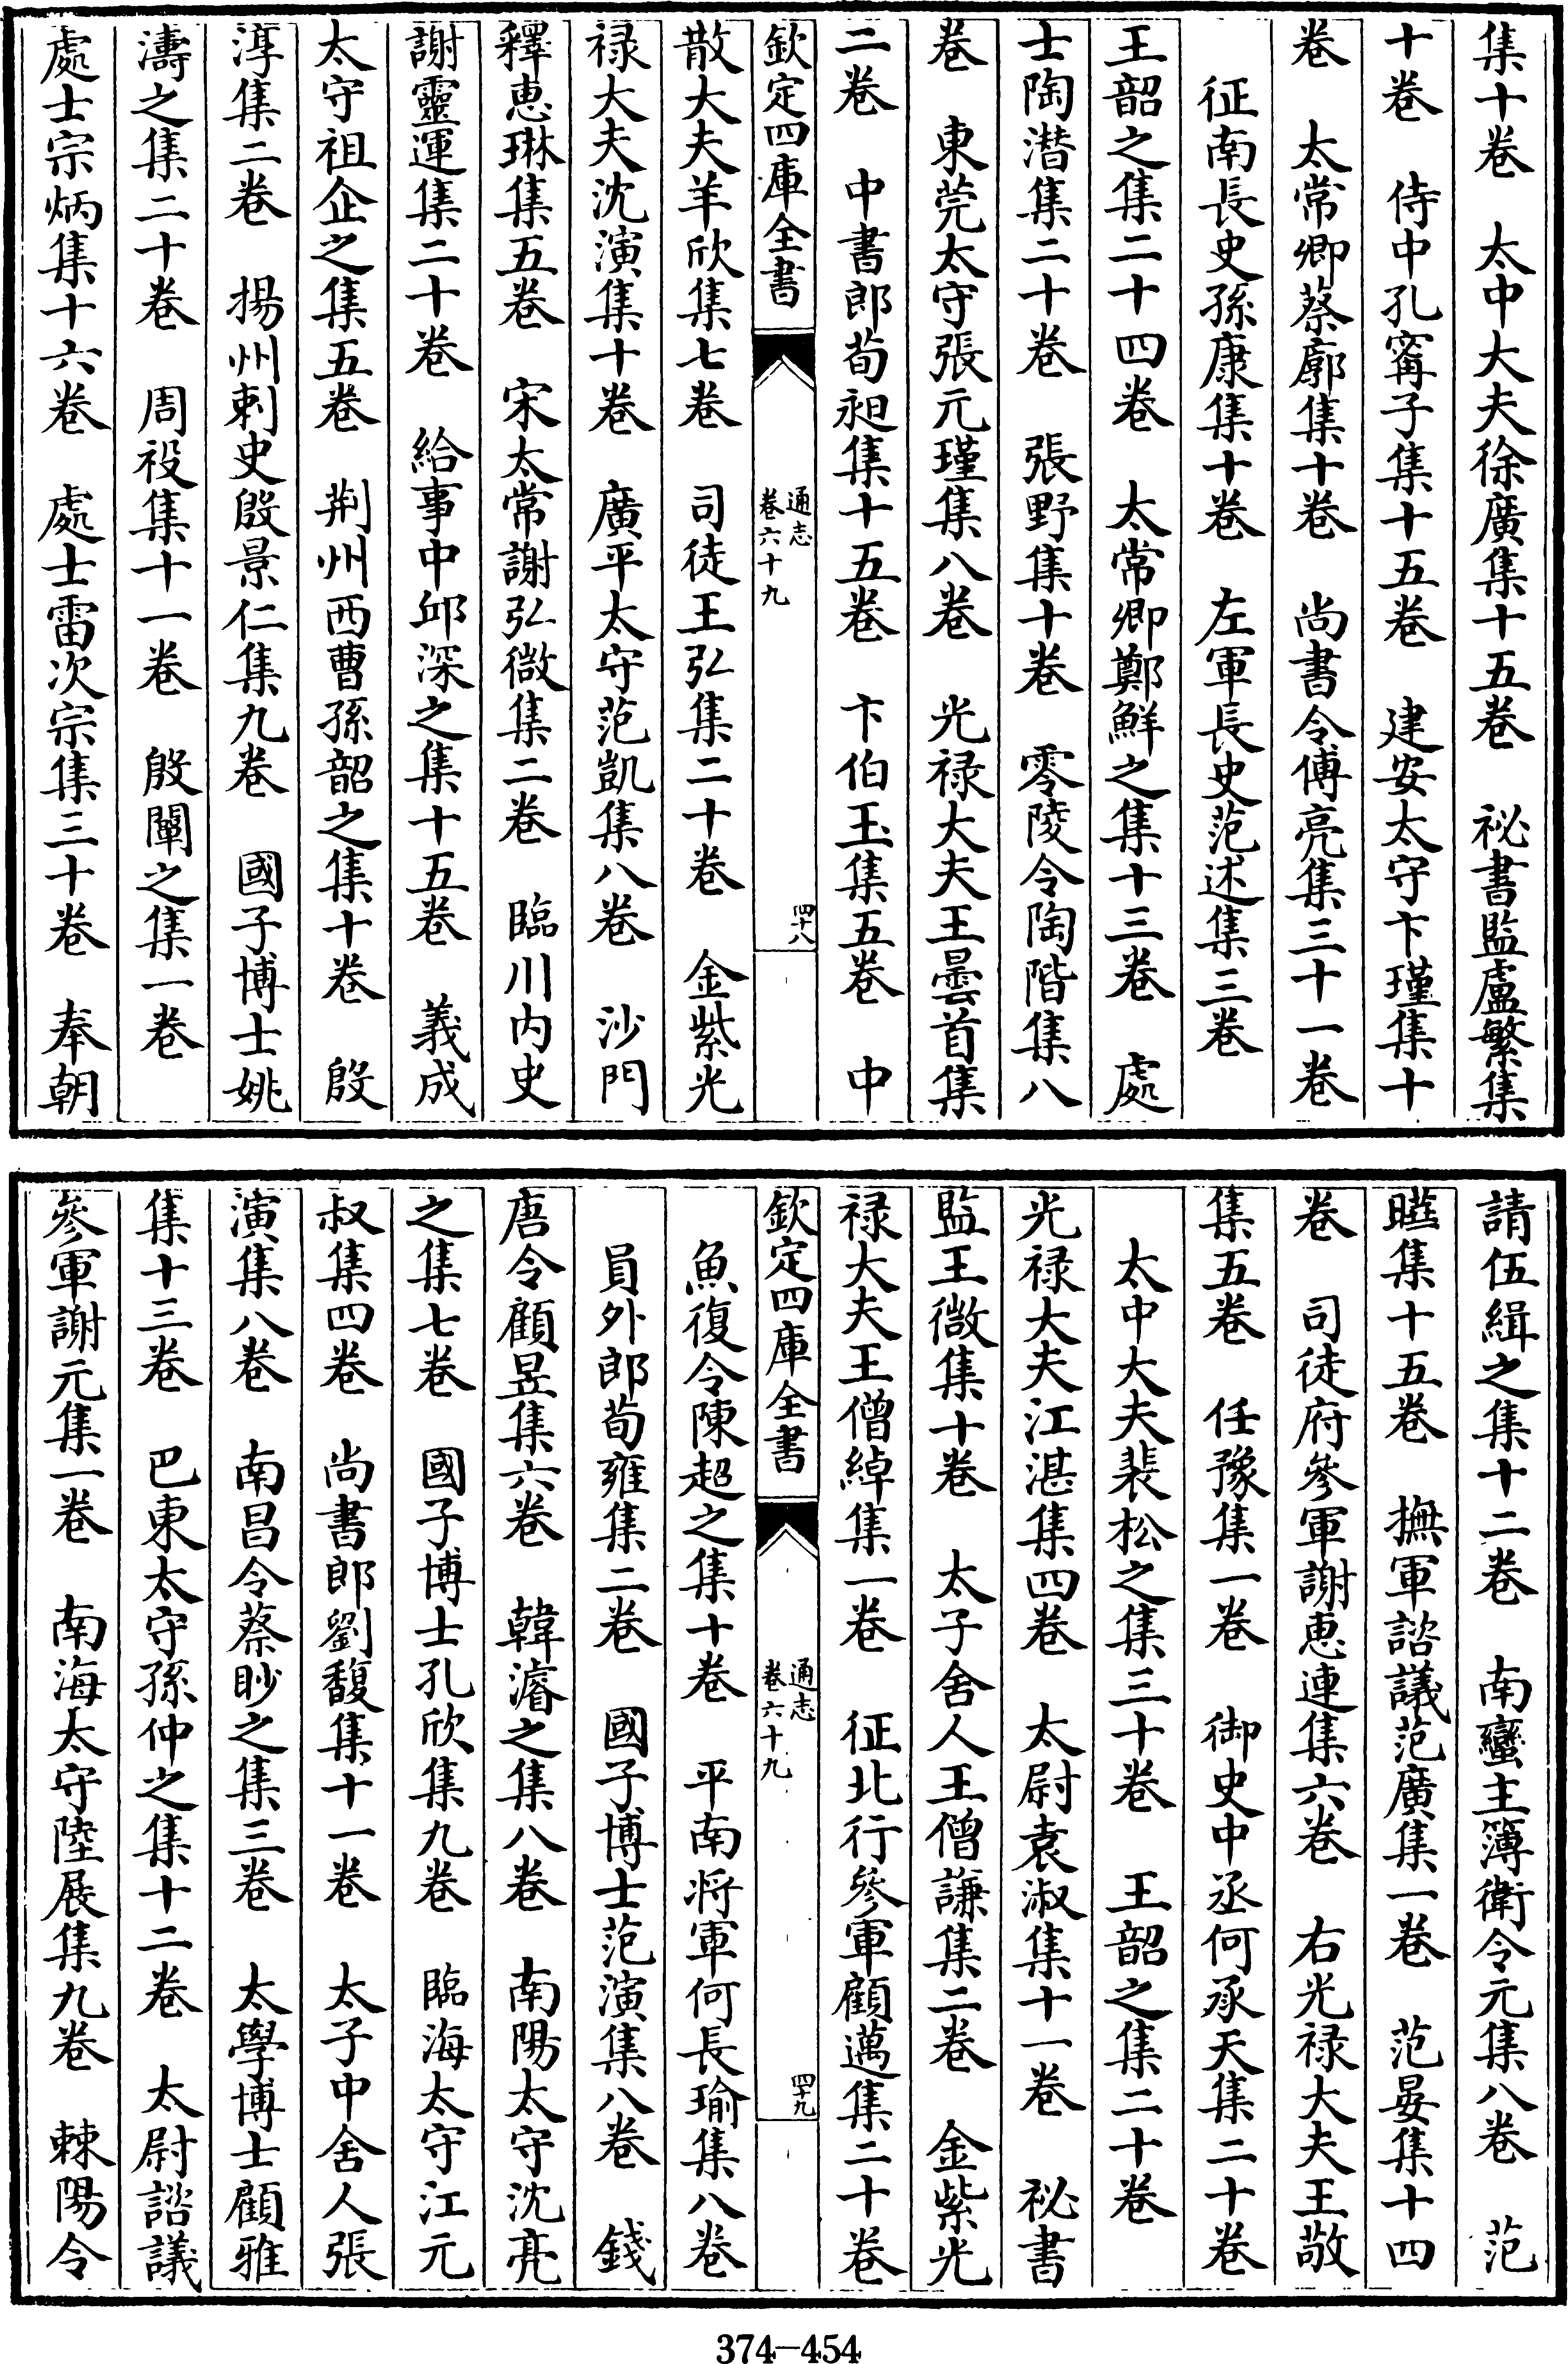 集十卷　太中大夫徐廣集十五卷　祕書監盧繁集
十卷　侍中孔寗子集十五卷　建安太守卞瑾集十
卷　太常卿蔡廓集十卷　尚書令傅亮集三十一卷
征南長史孫康集十卷　左軍長史范述集三卷
王韶之集二十四卷　太常卿鄭鮮之集十三卷　處
士陶潛集二十卷　張野集十卷　零陵令陶階集八
卷　東莞太守張元瑾集八卷　光禄大夫王曇首集
二卷　中書郎荀昶集十五卷　卞伯玉集五卷　中
欽定四庫全書　通志卷六十九　四十八
散大夫羊欣集七卷　司徒王弘集二十卷　金紫光
禄大夫沈演集十卷　廣平太守范凱集八卷　沙門
釋惠琳集五卷　宋太常謝弘微集二卷　臨川内史
謝靈運集二十卷　給事中邱深之集十五卷　義成
太守祖企之集五卷　荆州西曹孫韶之集十卷　殷
淳集二卷　揚州刺史殷景仁集九卷　國子博士姚
濤之集二十卷　周祋集十一卷　殷闡之集一卷
處士宗炳集十六卷　處士雷次宗集三十卷　奉朝
請伍緝之集十二卷　南蠻主簿衛令元集八卷　范
曄集十五卷　撫軍諮議范廣集一卷　范晏集十四
卷　司徒府參軍謝惠連集六卷　右光禄大夫王敬
集五卷　任豫集一卷　御史中丞何承天集二十卷
太中大夫裴松之集三十卷　王韶之集二十卷
光禄大夫江湛集四卷　太尉袁淑集十一卷　祕書
監王微集十卷　太子舍人王僧謙集二卷　金紫光
禄大夫王僧綽集一卷　征北行參軍顧邁集二十卷
欽定四庫全書　通志卷六十九　四十九
魚復令陳超之集十卷　平南将軍何長瑜集八卷
員外郎荀雍集二卷　國子博士范演集八卷　錢
唐令顧昱集六卷　韓濬之集八卷　南陽太守沈亮
之集七卷　國子博士孔欣集九卷　臨海太守江元
叔集四卷　尚書郎劉馥集十一卷　太子中舍人張
演集八卷　南昌令蔡眇之集三卷　太學博士顧雅
集十三卷　巴東太守孫仲之集十二卷　太尉諮議
參軍謝元集一卷　南海太守陸展集九卷　棘陽令
374-454